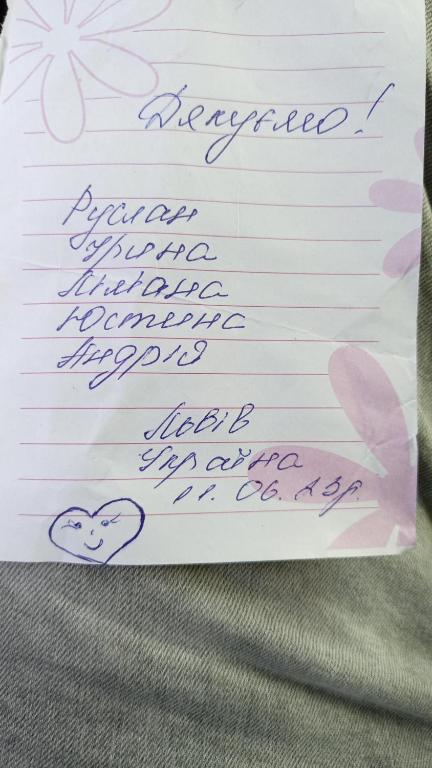 Дякуємо!
Руслан
Ірина
Ліліана
Юстина
Андрій
Львів
Україна
11.06.23р.